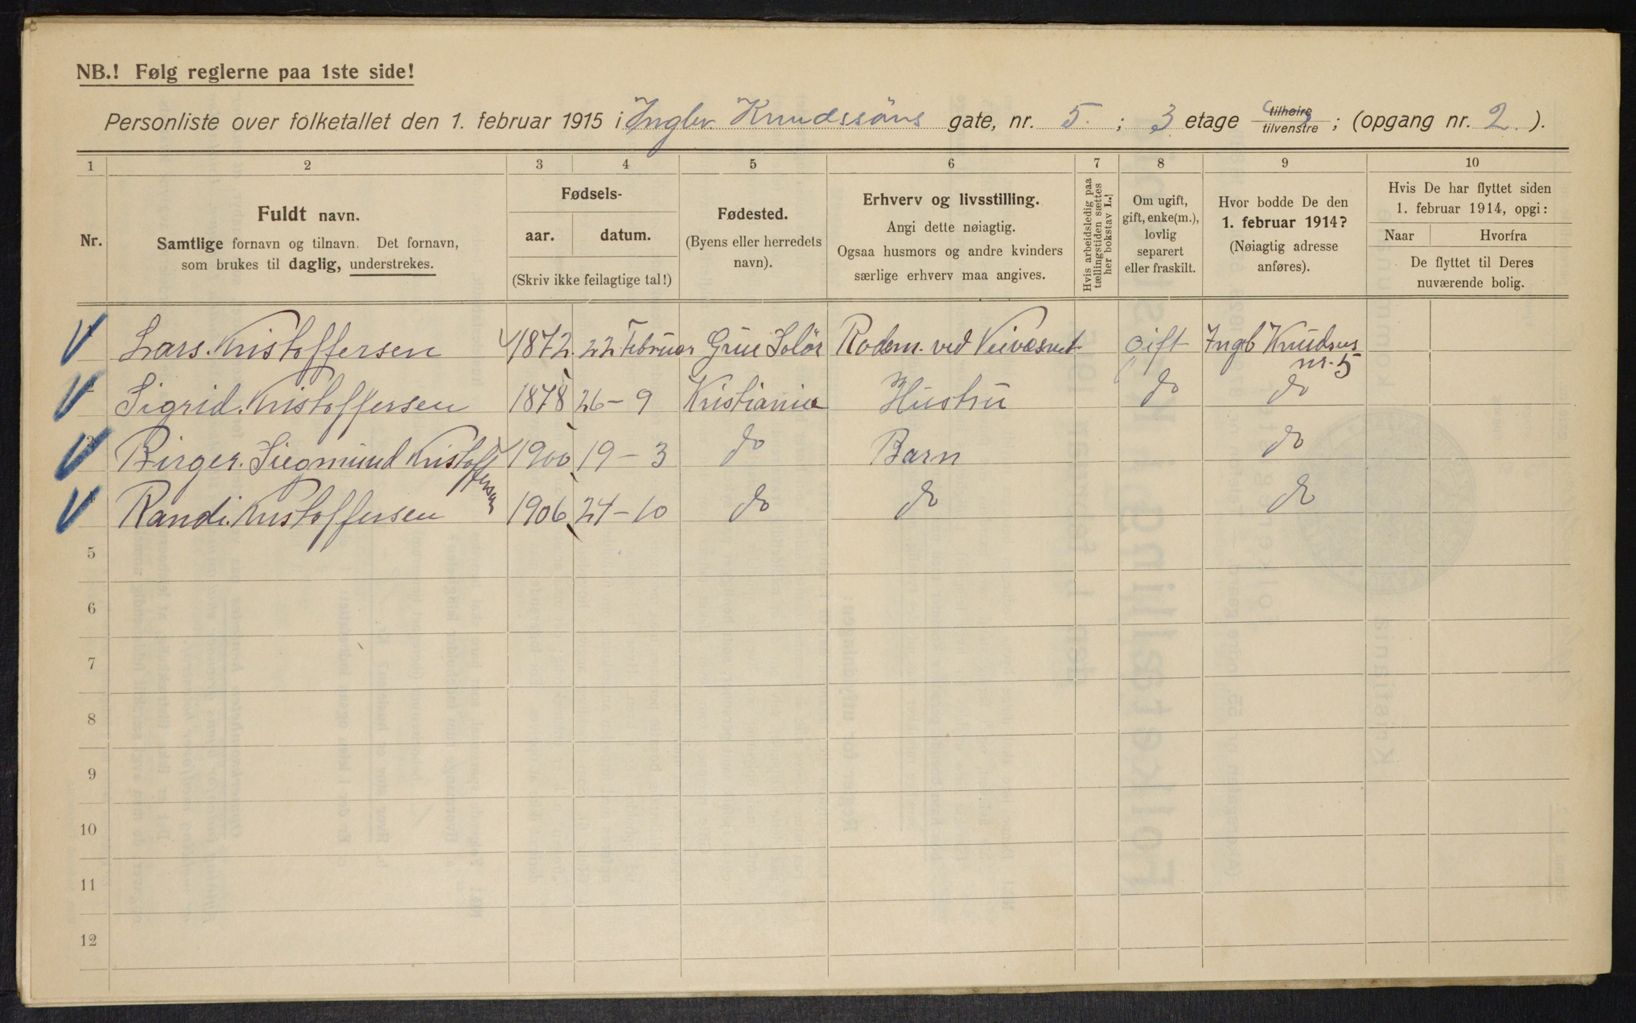 NB.! Følg reglerne paa 1ste side!
Personliste over folketallet den 1. februar 1915 i Ingbv Knudssöns gate, nr. 5. ; 3 etage tilhøire tilvenstre ; (opgang nr. 2. ).
1 2 3 4 5 6 7 8 9 10
Nr.
Fuldt navn.
Samtlige fornavn og tilnavn. Det fornavn,
som brukes til daglig, understrekes.
Fødsels-
aar. datum.
(Skriv ikke feilagtige tal!)
Fødested.
(Byens eller herredets
navn).
Erhverv og livsstilling.
Angi dette nøiagtig.
Ogsaa husmors og andre kvinders
særlige erhverv maa angives.
Hvis arbeidsledig paa
tællingstiden sættes
her bokstav L.
Om ugift,
gift, enke(m.),
lovlig
separert
eller fraskilt.
Hvor bodde De den
1. februar 1914?
(Nøiagtig adresse
anføres).
Hvis De har flyttet siden
1. februar 1914, opgi:
Naar Hvorfra
De flyttet til Deres
nuværende bolig.
Lars. Kristoffersen 1872. 22 Februar Grue Solör Rodem. ved Veivæsnet gift Ingb Knudsns
nr. 5
Sigrid. Kristoffersen 1878 26-9 Kristiania Hustru do do
Birger. Siegmund Kristoffersen 1900 19-3 do Barn do
Randi. Kristoffersen 1906 24-10 do do do
5
6
7
8
9
10
11
12